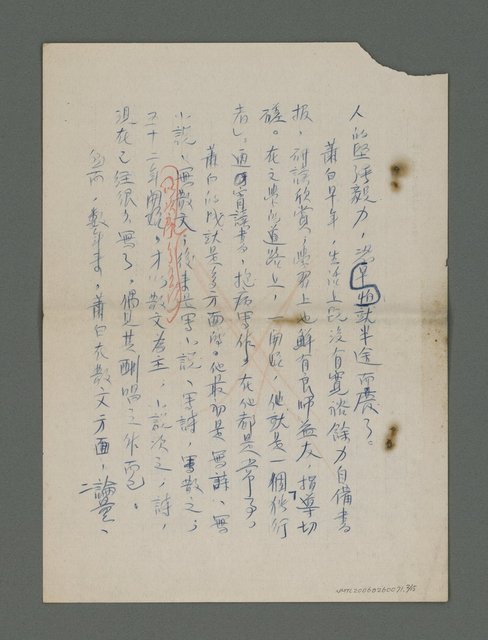 人的堅強毅力，恐早怕就半途而廢了。
蕭白早年，生活上既沒有寬裕餘力自備書
報，研讀欣賞，學習上也鮮有良師益友，指導切
磋。在文學的道路上，一開始，他就是一個「獨行
者」。通宵讀書，抱病寫作，在他都是常事。
蕭白的成就是多方面的。他最初是寫詩、寫
小說、寫散文，後來是寫小說、寫詩，寫散文；
五十二年開始，才以散文為主，小說次之，詩，
現在已經很少寫了。偶見其酬唱之作而已。
然而，數年來，蕭白在散文方面，論量、
NMTL20060260071, 7/15